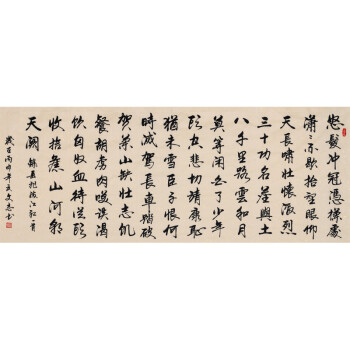 怒髮冲冠憑欄處
瀟瀟雨歇抬望眼仰
天長嘯壯懷激烈
三十功名塵與土
八千里路雲和月
莫等閒白了少年
頭空悲切靖康恥
猶未雪臣子恨何
時滅駕長車踏破
賀蘭山缺壯志飢
餐胡虜肉笑談渴
飲匈奴血待從頭
收拾舊山河朝
天闕 岳飛滿江紅一首
歲在丙申年 文志書